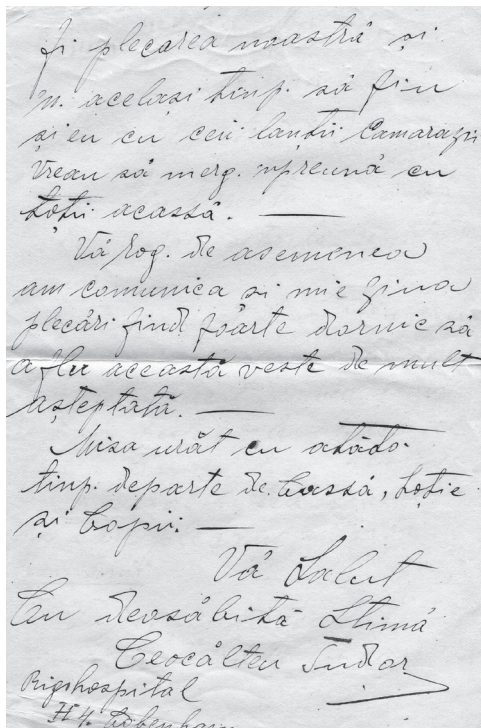 fi plecarea noastră și
în acelasi timp. să fiu
și eu cu ceilanții Camarazi
Vreau să merg. npreună cu
toții acassă. —
Vă rog. de asemenea
am comunica si mie ziua
plecări fiind foarte dornic să
aflu această veste de mult
așteptată. —
Misa urăt cu atăta
timp. departe de Cassă, soție
și Copii: —
Vă Salut
Cu deosăbită Stimă
Ceocălteu Tudor
Rigshospital